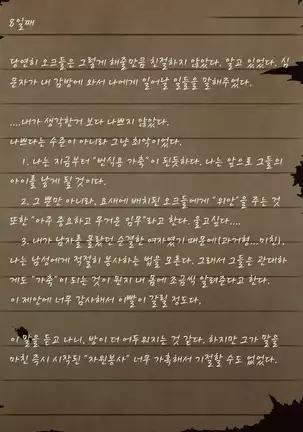 8일째
당연히 오크들은 그렇게 해줄만큼 친절하지 않았다. 알고 있었다. 심
문자가 내 감방에 와서 나에게 일어날 일들을 말해주었다.
....내가 생각한거 보다 나쁘지 않았다.
나쁘다는 수준이 아니라 그냥 최악이었다.
1. 나는 지금부터 "번식용 가축"이 된듯하다. 나는 앞으로 그들의
아이를 낳게 될 것이다.
2. 그 뿐만 아니라, 요새에 배치된 오크들에게 "위안"을 주는 것
또한 "아주 중요하고 무거운 임무"라고 한다. 울고싶다....
3. 내가 남자를 몰랐던 순결한 여자였기 때문에(과거형...미친),
나는 남성에게 적절히 봉사하는 법을 모른다. 그래서 그들은 관대하
게도 "가축"이 되는 것이 뭔지 내 몸에 조금씩 알려준다고 한다.
이 제안에 너무 감사해서 이빨이 갈릴 정도다.
이 말을 듣고 나니, 밤이 더 어두워지는 것 같다. 하지만 그가 말을
마친 즉시 시작된 "자원봉사" 너무 가혹해서 기절할 수도 없었다.